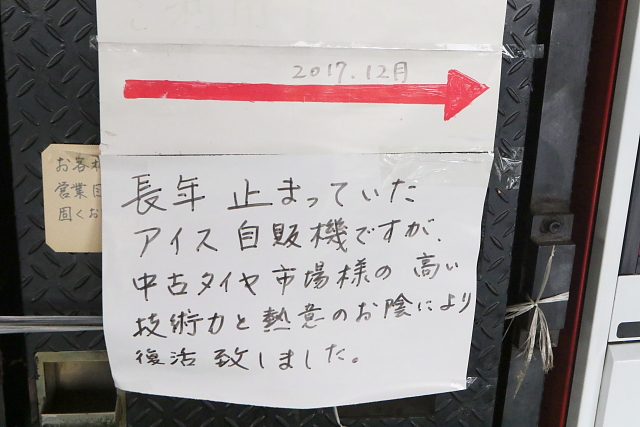 2017.12月
長年 止まっていた
アイス自販機ですが、
中古タイヤ市場様の高い
技術力と熱意のお陰により
復活致しました。
お客様
営業
固くお